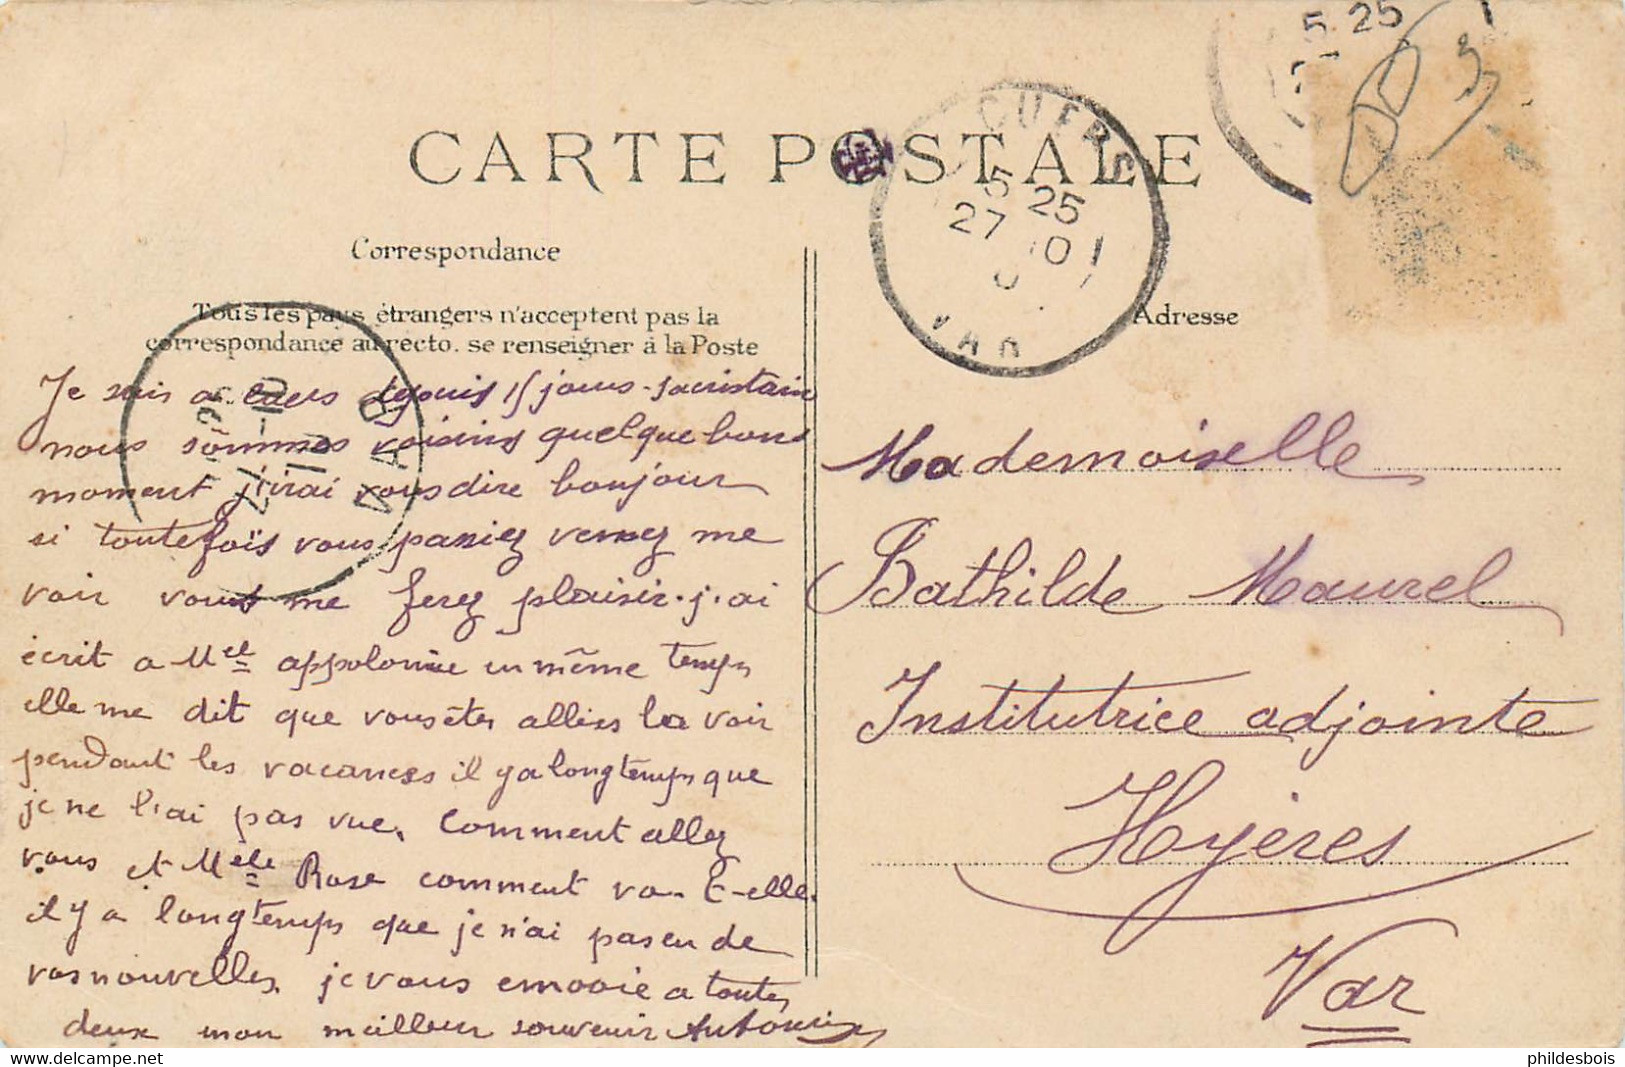 5 25
CARTE POSTALE
CUERS
5 25
27 10
VAR
Correspondance
Tous les pays étrangers n'acceptent pas la
correspondance au recto. se renseigner à la Poste
Adresse
Je suis a cuers depuis 15 jours. sacristain
nous sommes voisins quelque bons
moment j'irai vous dire bonjour
si toutefois vous passiez venez me
voir vous me ferez plaisir. j.ai
écrit a Mell appolonie en même temps
elle me dit que vous êtes allées la voir
pendant les vacances il y a longtemps que
je ne l'ai pas vue. Comment allez
vous et Melle Rose comment va-t-elle.
il y a longtemps que je n'ai pas eu de
vos nouvelles. je vous envoie a toutes
deux mon meilleur souvenir
VAR
Mademoiselle
Bathilde Maurel
Institutrice adjointe
Hyères
Var
phildesbois